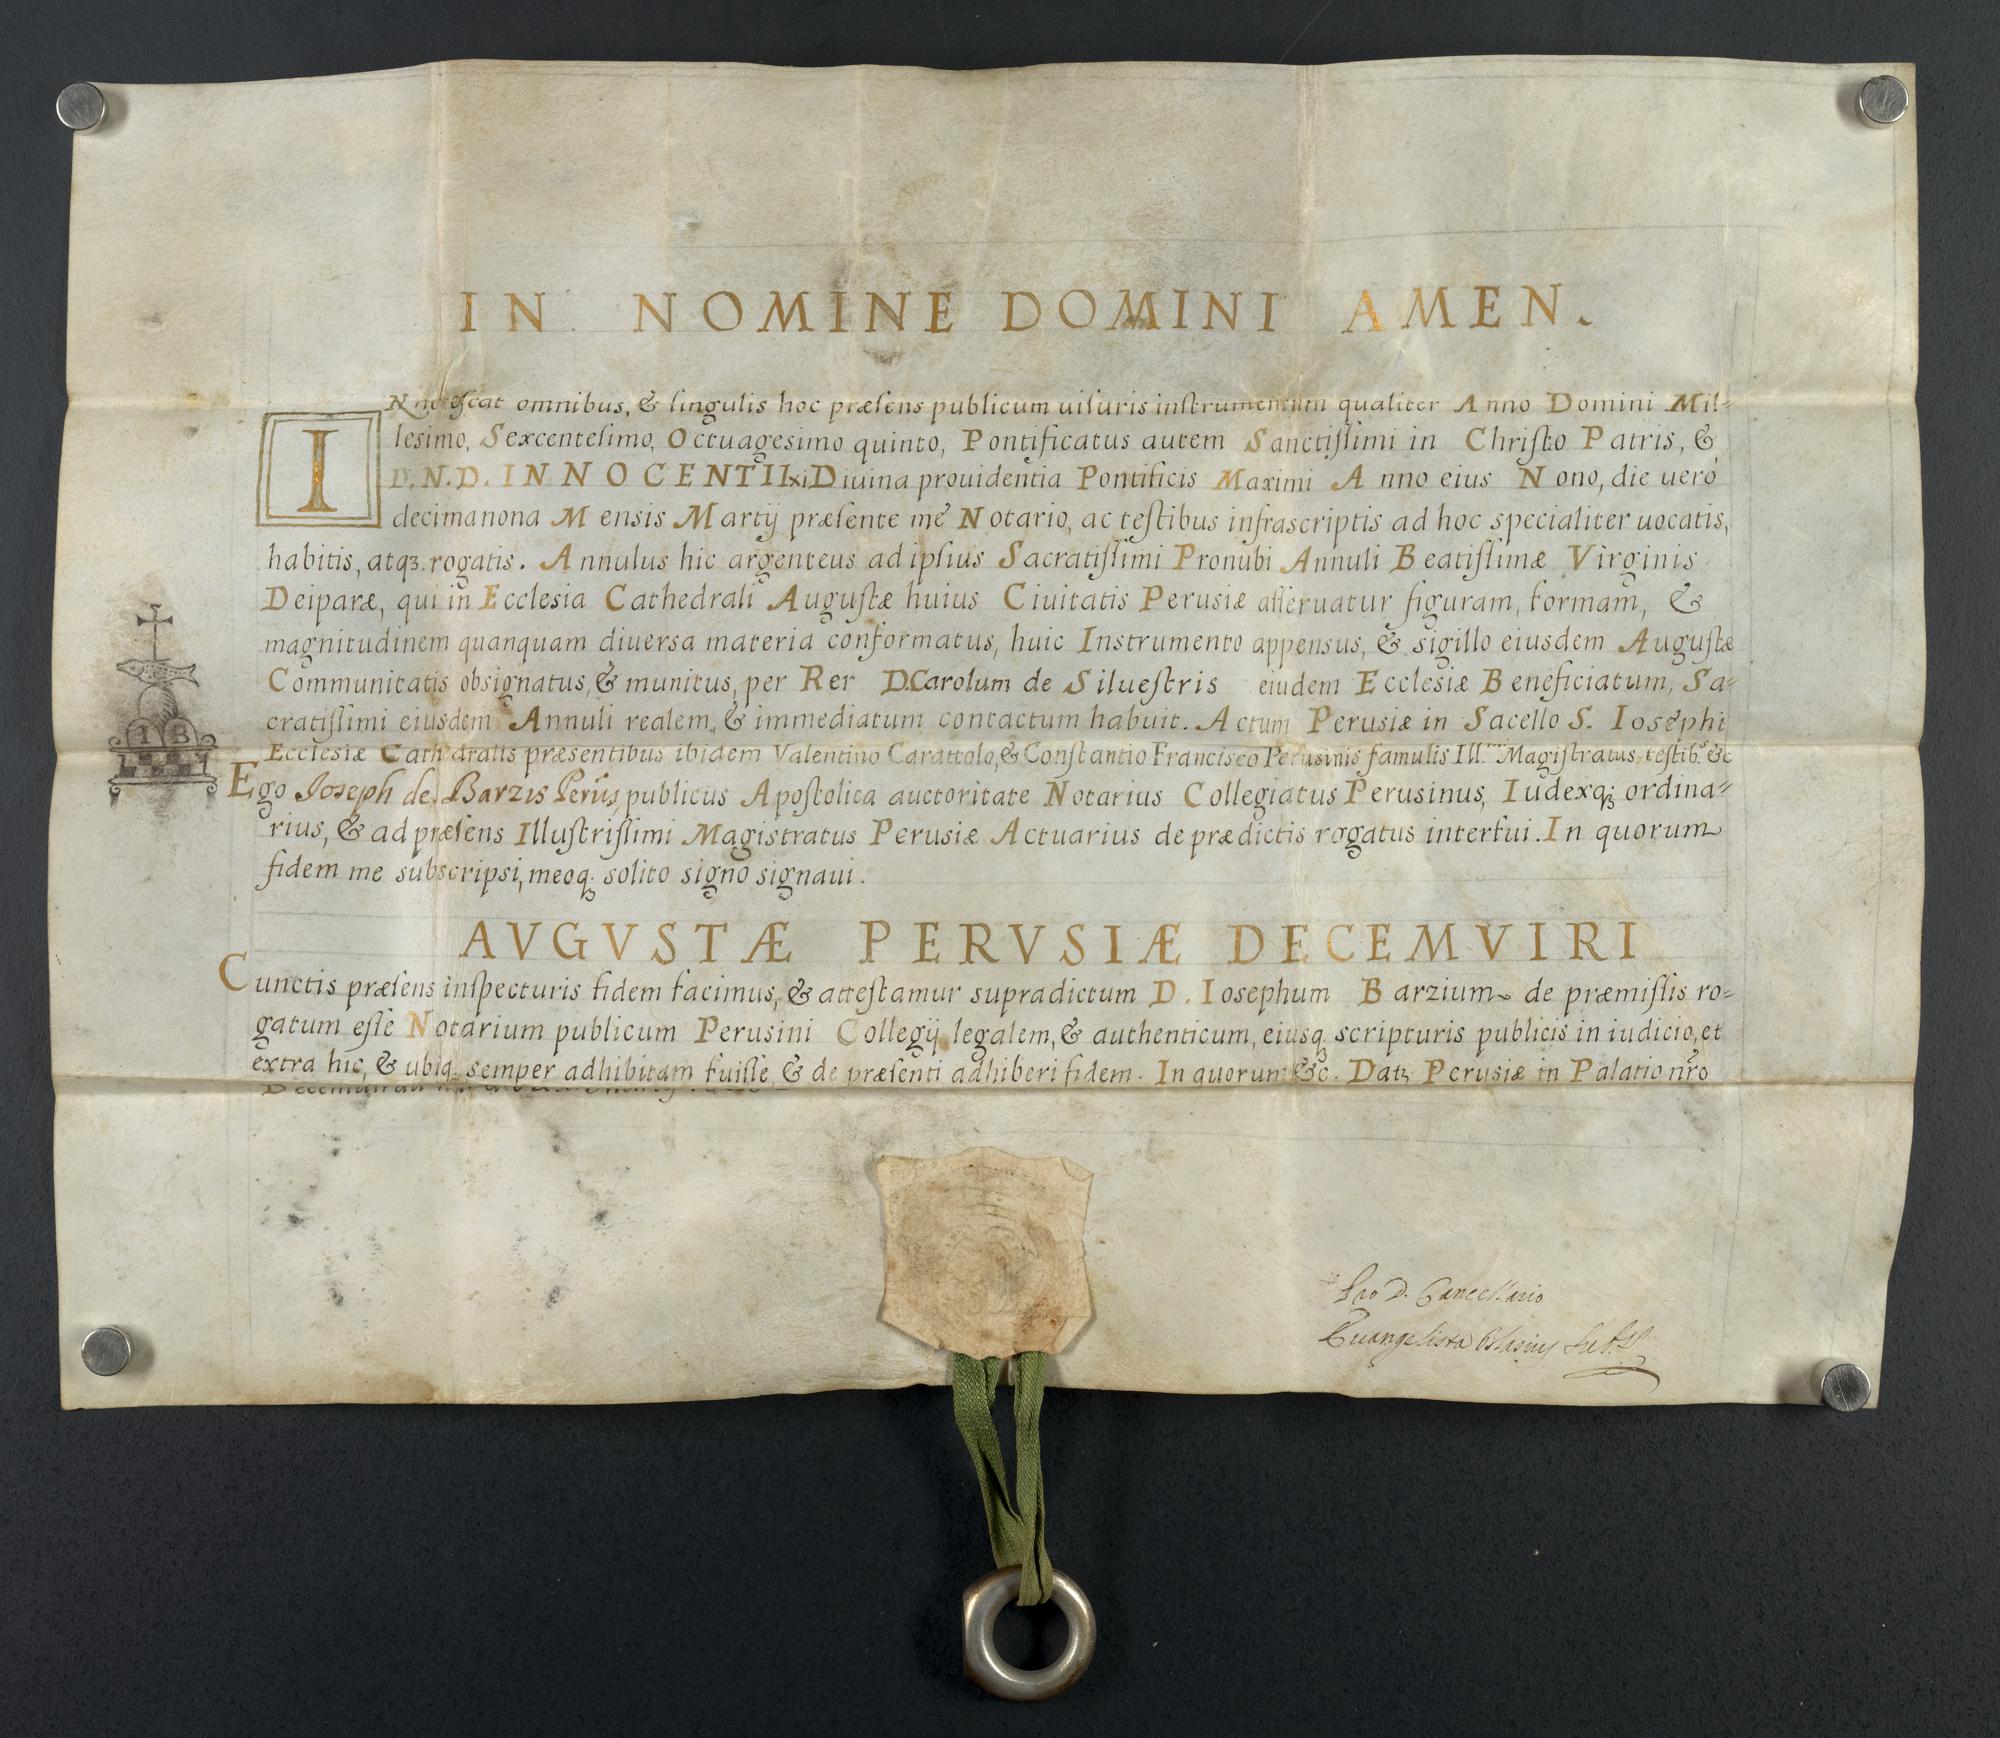 IN NOMINE DOMINI AMEN.
INnotescat omnibus, & singulis hoc præsens publicum uisuris instrumentum qualiter Anno Domini Mil=
lesimo, Sexcentesimo, Octuagesimo quinto, Pontificatus autem Sanctissimi in Christo Patris, &
D.N.D. INNOCENTII xi Diuina prouidentia Pontificis Maximi Anno eius Nono, die uerò
decimanona Mensis Martij præsente me Notario, ac testibus infrascriptis ad hoc specialiter uocatis,
habitis, atqȝ rogatis. Annulus hic argenteus ad ipsius Sacratissimi Pronubi Annuli Beatissimæ Virginis
Deiparæ, qui in Ecclesia Cathedrali Augustæ huius Ciuitatis Perusiæ asseruatur figuram, formam, &
magnitudinem quanquam diuersa materia conformatus, huic Instrumento appensus, & sigillo eiusdem Augustæ
Communitatis obsignatus, & munitus, per Rer D. Carolum de Siluestris eiudem Ecclesiæ Beneficiatum, Sa=
cratissimi eiusdem Annuli realem, & immediatum contactum habuit. Actum Perusiæ in Sacello S. Iosephi
Ecclesiæ Cathedralis præsentibus ibidem Valentino Carattolo, & Constantio Francisco Perusinis famulis Ill.mi Magistratus testib.s &c
Ego Joseph de Barzis Perus publicus Apostolica auctoritate Notarius Collegiatus Perusinus, Iudexqȝ ordina=
rius, & ad præsens Illustrissimi Magistratus Perusiæ Actuarius de prædictis rogatus interfui. In quorum
fidem me subscripsi, meoqȝ solito signo signaui.
I B
AVGVSTÆ PERVSIÆ DECEMVIRI
Cunctis præsens inspecturis fidem facimus, & attestamur supradictum D. Iosephum Barzium de præmissis ro=
gatum esse Notarium publicum Perusini Collegij legalem, & authenticum, eiusqȝ scripturis publicis in iudicio, et
extra hic, & ubiqȝ semper adhibitam fuisse, & de præsenti adhiberi fidem. In quorum &c. Datȝ Perusiæ in Palatio nro
Pro D. Cancellario
Euangelista Blasius